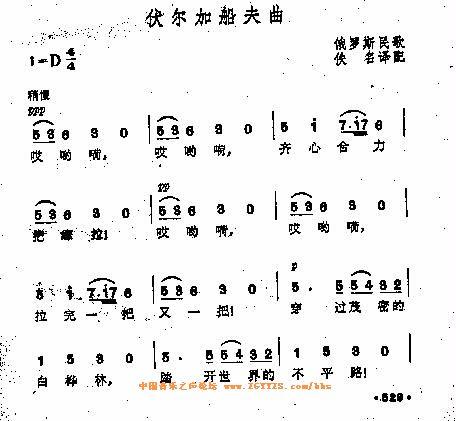 伏尔加船夫曲
俄罗斯民歌
1=D 4/4
佚名译配
稍慢
ppp
5 3 6 3 0 5 3 6 3 0 5 i 7·i7 6
哎哟嗬, 哎哟嗬, 齐心合力
pp
5 3 6 3 0 5 3 6 3 0 5 3 6 3 0
把纤拉! 哎哟嗬, 哎哟嗬,
p
5 i 7·i7 6 5 3 6 3 0 5· 5 5 4 3 2
拉完一把 又一把! 穿 过茂密的
1 5 3 0 5· 5 5 4 3 2 1 5 3 0
白桦林, 踏 开世界的 不平路!
中国音乐之声论坛 www.ZGYYZS.com/bbs
·529·